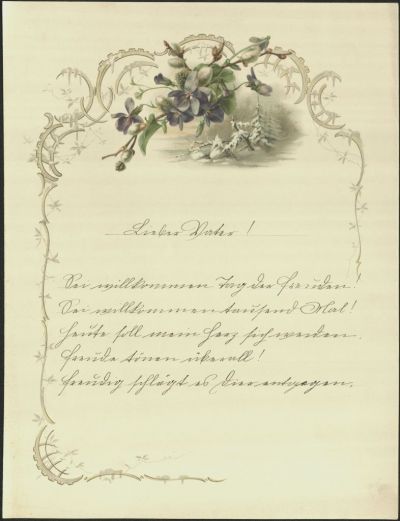 Lieber Vater!
Sei willkommen Tag der Freuden!
Sei willkommen tausend Mal!
Heute soll mein Herz sich weiden.
Freude tönen überall!
Freudig schlägt es Dir entgegen.